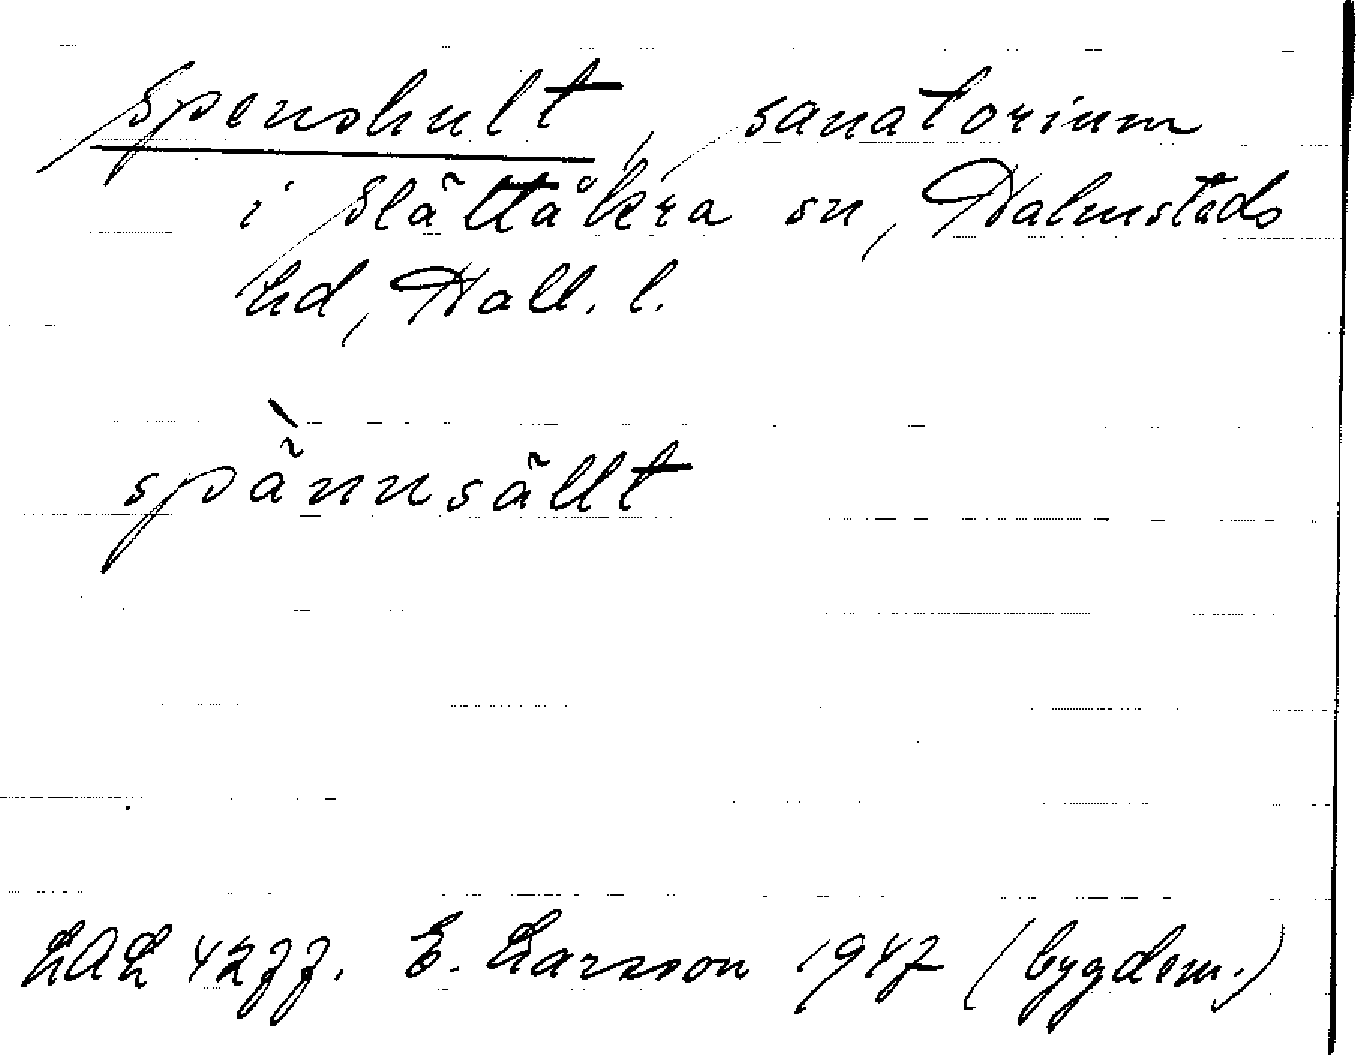 Spenshult, sanatorium
i Slättåkra sn, Halmstads
hd, Hall. l.
spä̀nnsällt
LAL 4277. E. Larsson 1947 (bygdem.)